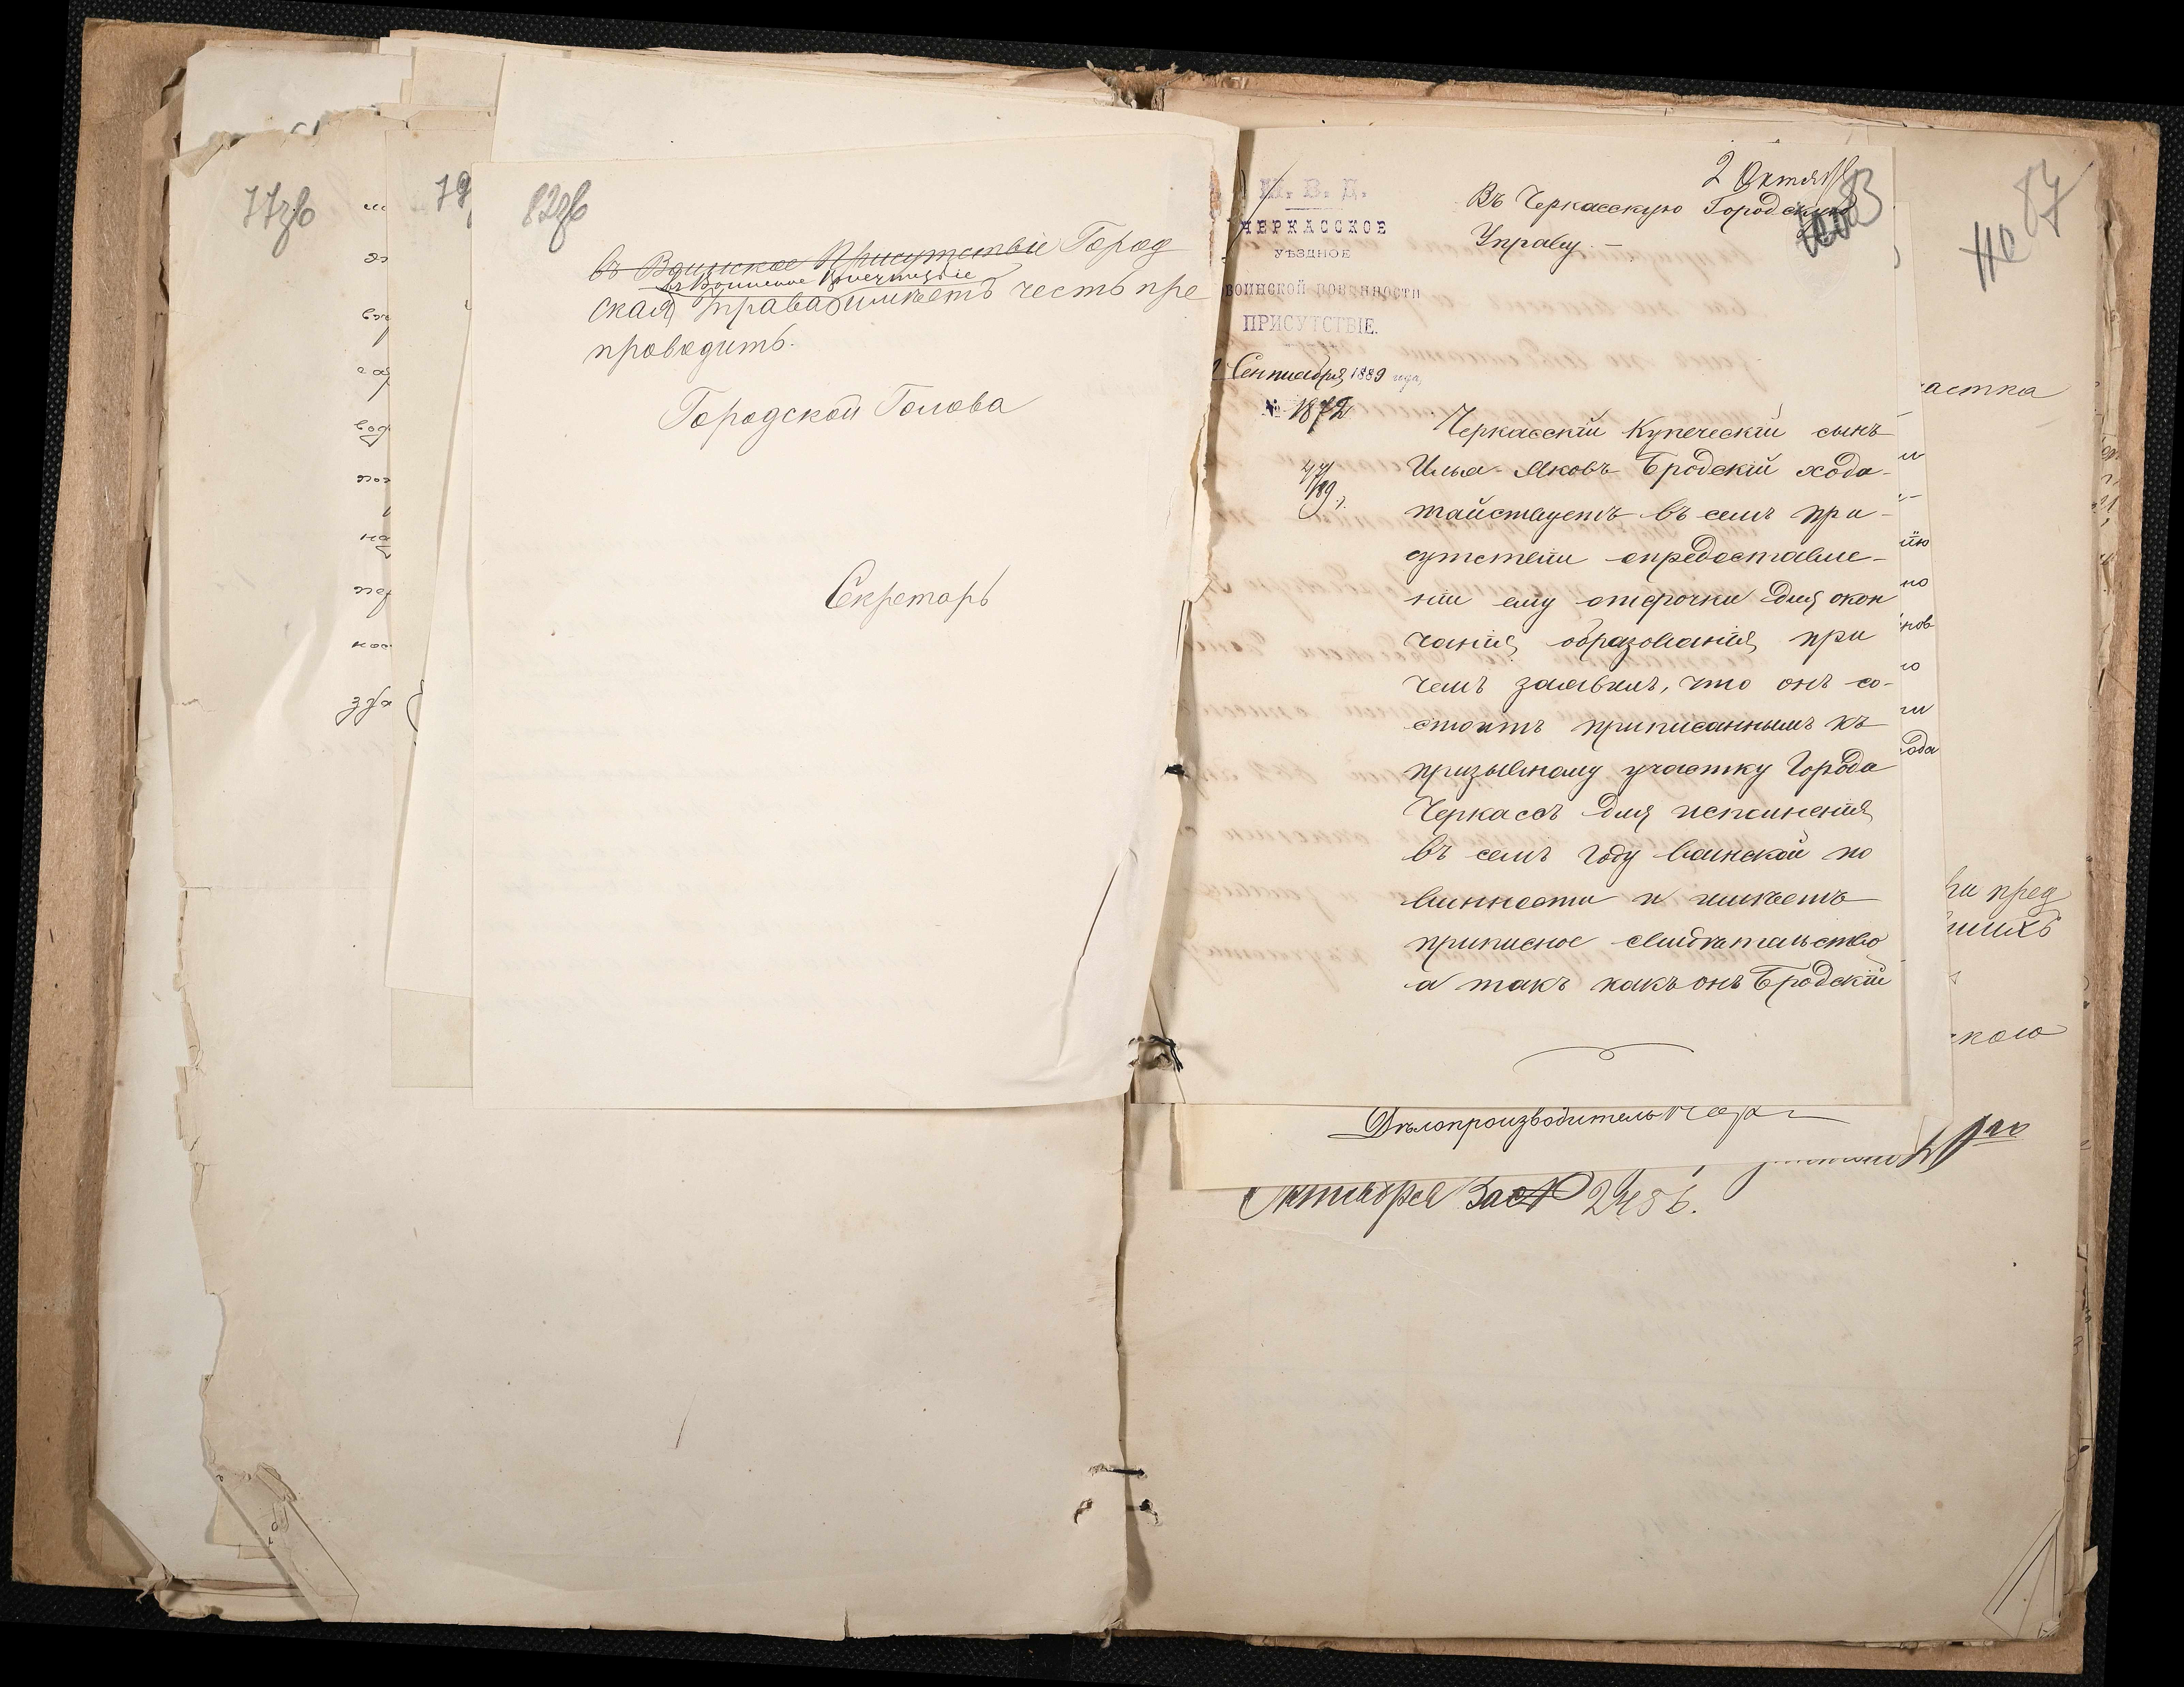 77зв
79
82зв
въ Воинское Присутствіе Город
въ Воинское Присутствіе
ская Управа имѣетъ честь пре
проводить.
Городской Голова
Секретарь
2 Октября
83
М. В. Д.
ЧЕРКАССКОЕ
УѢЗДНОЕ
ВОИНСКОЙ ПОВИННОСТИ
ПРИСУТСТВІЕ.
Сентября 1889 года,
№ 1872
47/89 г.
Въ Черкасскую Городскую
Управу. —
Черкасскій Купеческій сынъ
Илья-Яковъ Бродскій хода-
тайствуетъ въ семъ при-
сутствіи опредоставле-
ніи ему отсрочки для окон
чанія образованія при
чемъ заявилъ, что онъ со-
стоитъ приписаннымъ къ
призывному участку Города
Черкассъ для исполненія
въ семъ году воинской по
винности и имѣетъ
приписное свидѣтельство
а такъ какъ онъ Бродскій
87
астка
ію
но
нов
ю
ода
пред
шихъ
ского
Дѣлопроизводитель
Октября За № 2486.